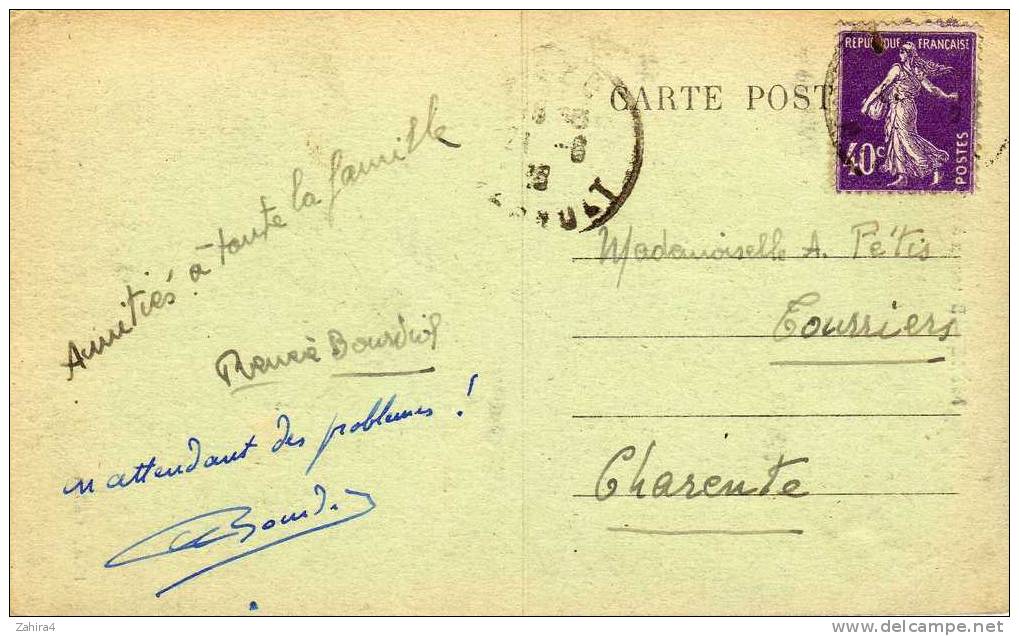 CARTE POST
REPUBLIQUE FRANÇAISE
40c
POSTES
Amitiés à toute la famille
Renée Bourdiol
n attendant des problemes !
Mademoiselle A. Pétis
Tourriers
Charente
Zahira4
www.delcampe.net